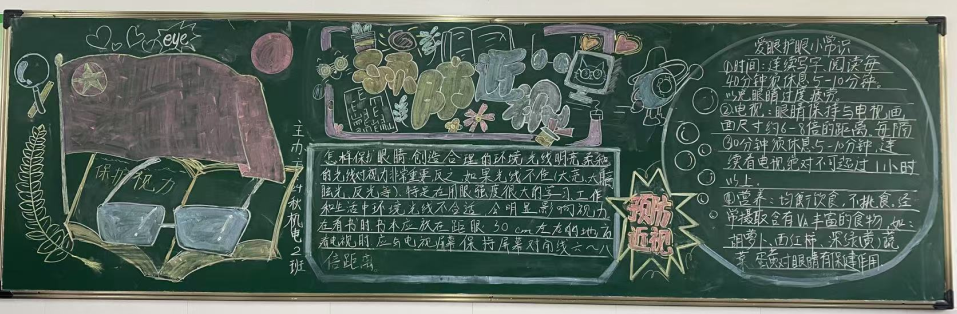 eye
保护视力
主办
秋机电2班
预防近视
怎样保护眼睛创造合理的环境光线明亮柔和
的光线对视力非常重要反之如果光线不佳(太亮、太暗
眩光、反光等)特是在用眼强度很大的学习工作
和生活中环境光线不合适会明显影响视力
在看书时书本应放在距眼30cm左右的地方
看电视时应与电视屏幕保持屏幕对角线六~八
倍距离
预防
近视
爱眼护眼小常识
①时间:连续写字、阅读每
40分钟须休息5-10分钟。
以免眼睛过度疲劳
②电视:眼睛保持与电视画
面尺寸约6-8倍的距离,每隔
③30分钟须休息5-10分钟,连
续看电视绝对不可超过1小时
以上.
④营养:均衡饮食,不挑食,经
常摄取含有VA丰富的食物,如:
胡萝卜、西红柿、深绿(黄)蔬
菜、蛋类对眼睛有保健作用